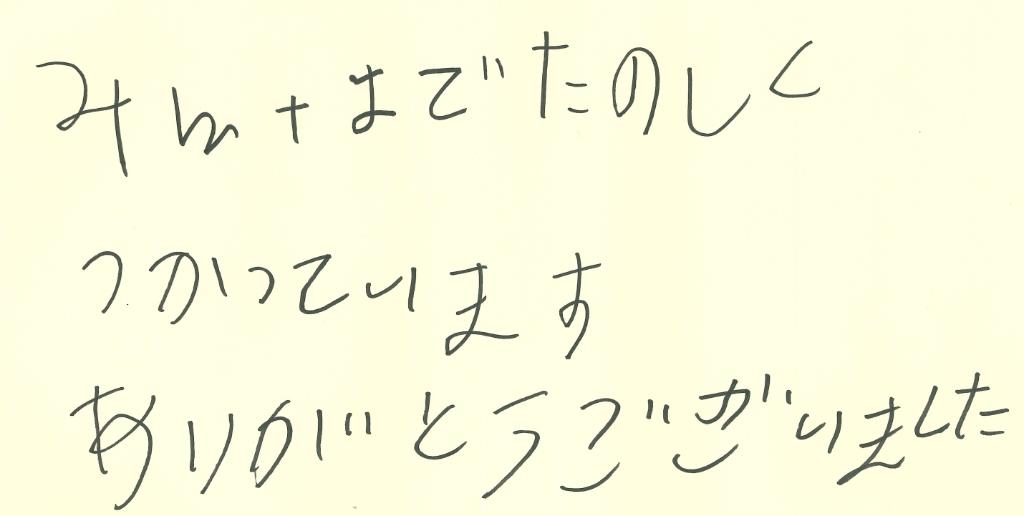 みんなでたのしく
つかっています
ありがとうございました